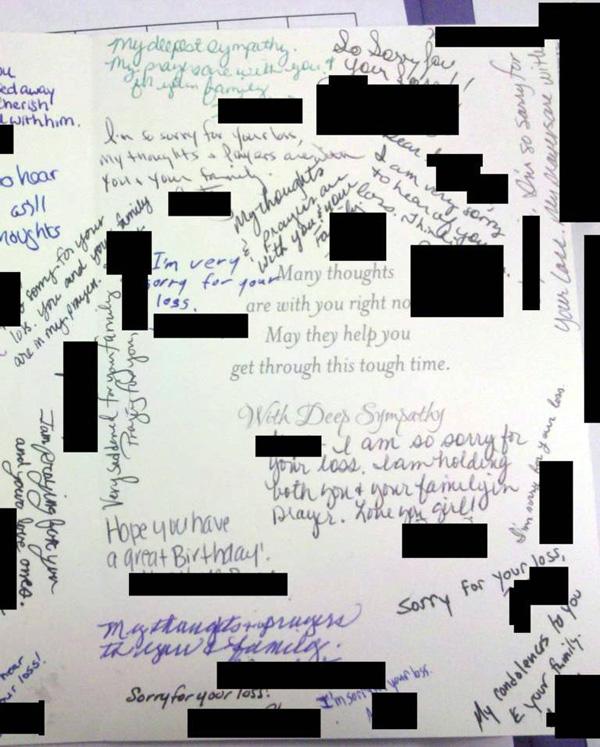 My deepest sympathy.
My prays are with you &
your family
So Sorry for
your loss!!
I'm so sorry for your loss,
my thoughts & Prayers are
you & your family.
My thoughts
& prayers are
with you & your
I am very sorry
to hear of your
loss.
I'm so sorry for
your loss my prayers are with
ed away
cherish
with him.
hear
as ll
thoughts
sorry for your
loss. you and your family
are in my prayers.
I'm very
sorry for your
loss.
Many thoughts
are with you right no
May they help you
get through this tough time.
With Deep Sympathy
I am so sorry for
your loss. I am holding
both you & your family in
prayer. Love you girl!
Very saddened for your family
Praying for you,
I am praying for you
and your love ones.
Hope you have
a great Birthday!
I'm sorry for your loss.
Sorry for your loss,
My condolences to you
& your family.
My thoughts & prayers
to you & family.
hear
our loss!
Sorry for your loss!
I'm sorry your loss.